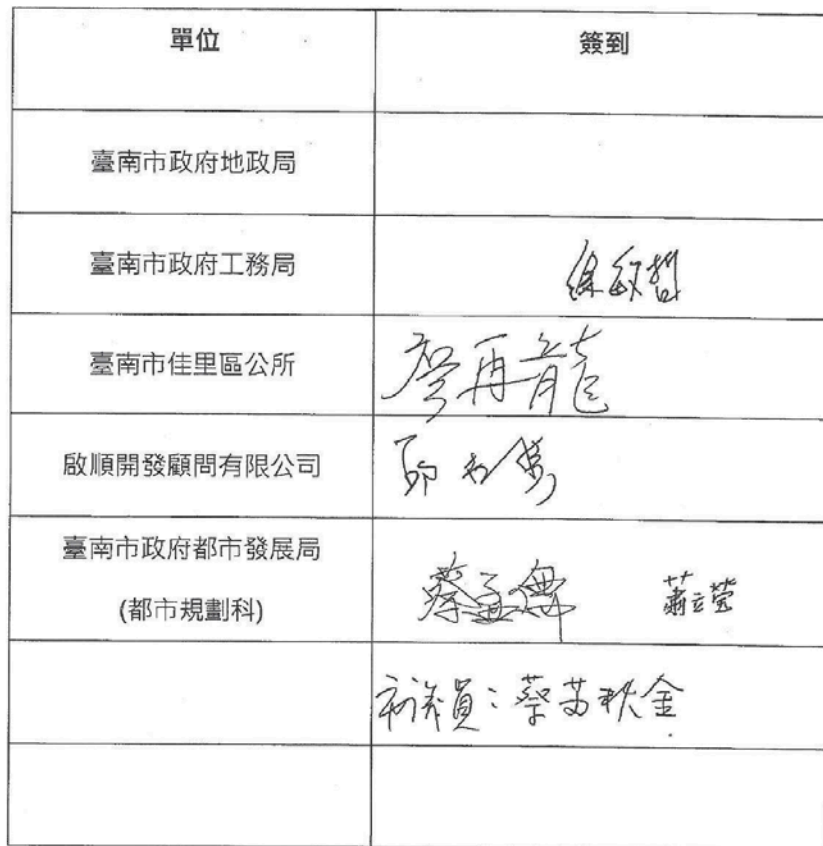 單位 簽到
臺南市政府地政局
臺南市政府工務局 徐敏哲
臺南市佳里區公所 再龍
啟順開發顧問有限公司
臺南市政府都市發展局
(都市規劃科) 蔡孟 蕭立瑩
市議員：蔡蘇秋金